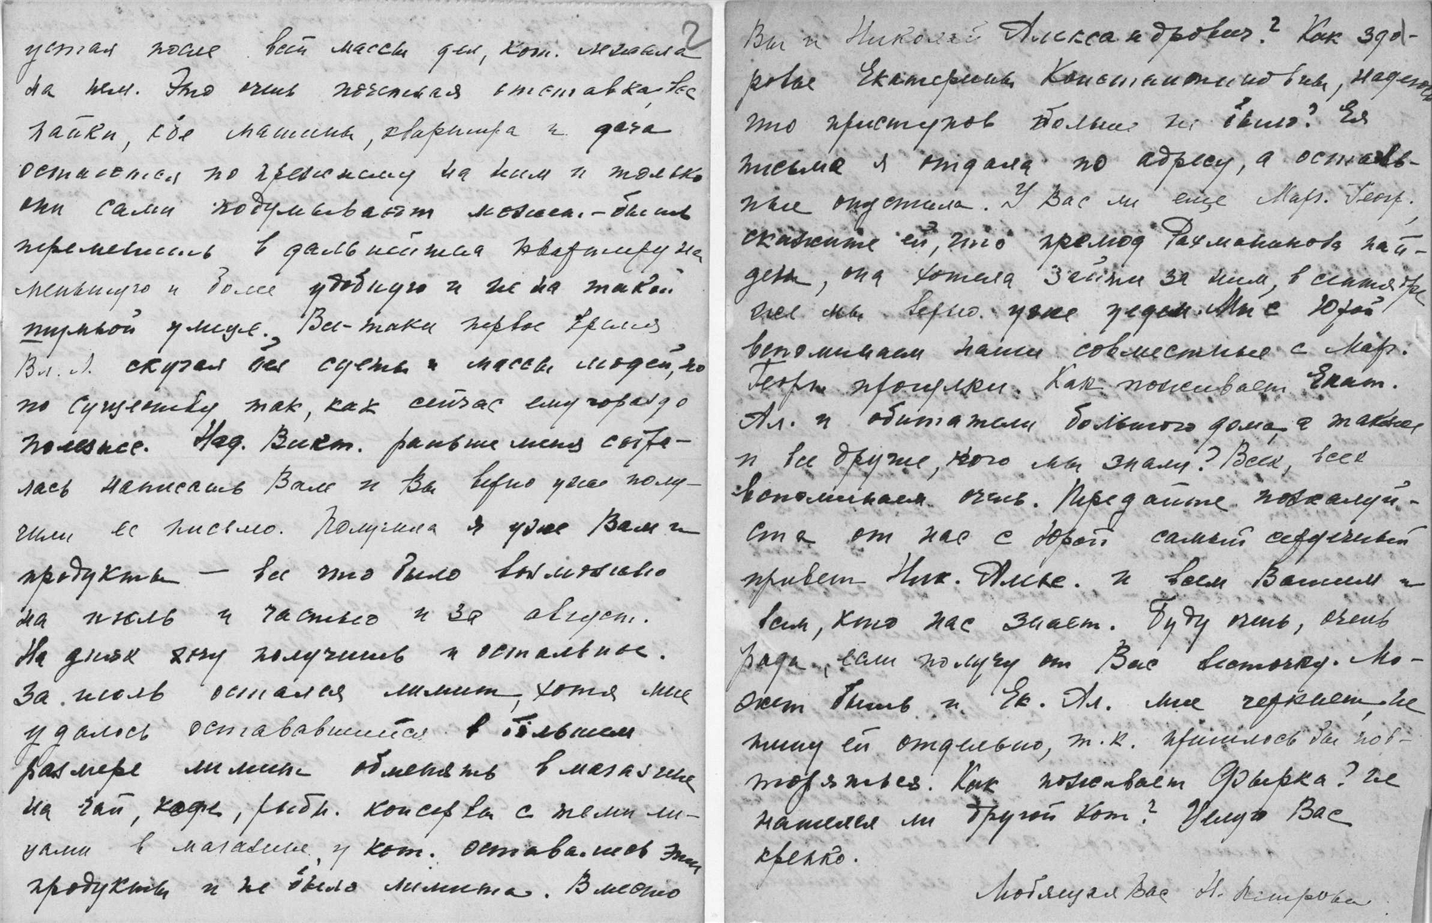 2
устал после всей массы дел, кот. лежала
на нем. Это очень почетная отставка, все
пайки, обе машины, квартира и дача
остаются по прежнему на ним и только
они сами подумывают может-быть
переменить в дальнейшем квартиру на
меньшую и более удобную и не на такой
шумной улице. Все-таки первое время
Вл. Л. скучал без суеты и массы людей, но
по существу так, как сейчас ему гораздо
полезнее. Над. Викт. раньше меня собра-
лась написать Вам и Вы верно уже полу-
чили ее письмо. Получила я уже Вам и
продукты — все что было возможно
на июль и частью и за август.
На днях хочу получить и остальное.
За июль остался лимит, хотя мне
удалось остававшийся в большем
размере лимит обменять в магазине
на чай, кофе, рыбн. консервы с теми ли-
цами в магазине, у кот. оставались эти
продукты и не было лимита. Вместо
Вы и Николай Александрович? Как здо-
ровье Екатерины Константиновны, надеюсь
что приступов больше не было? Ея
письма я отдала по адресу, а осталь-
ные опустила. У Вас ли еще Мар. Геор.,
скажите ей, что прелюд Рахманинова най-
ден, она хотела зайти за ним, в сентябре
нее мы верно уже уедем. Мы с Юрой
вспоминаем наши совместные с Мар.
Георг. прогулки. Как поживает Екат.
Ал. и обитатели большого дома, а также
и все другие, кого мы знали? Всех, всех
вспоминаем очень. Передайте пожалуй-
ста от нас с Юрой самый сердечный
привет Ник. Алекс. и всем Вашим и
всем, кто нас знает. Буду очень, очень
рада, если получу от Вас весточку. Мо-
жет быть и Ек. Ал. мне черкнет, не
пишу ей отдельно, т.к. пришлось бы пов-
торяться. Как поживает Фырка? Не
нашелся ли другой кот? Целую Вас
крепко.
Любящая Вас Н. Петрова